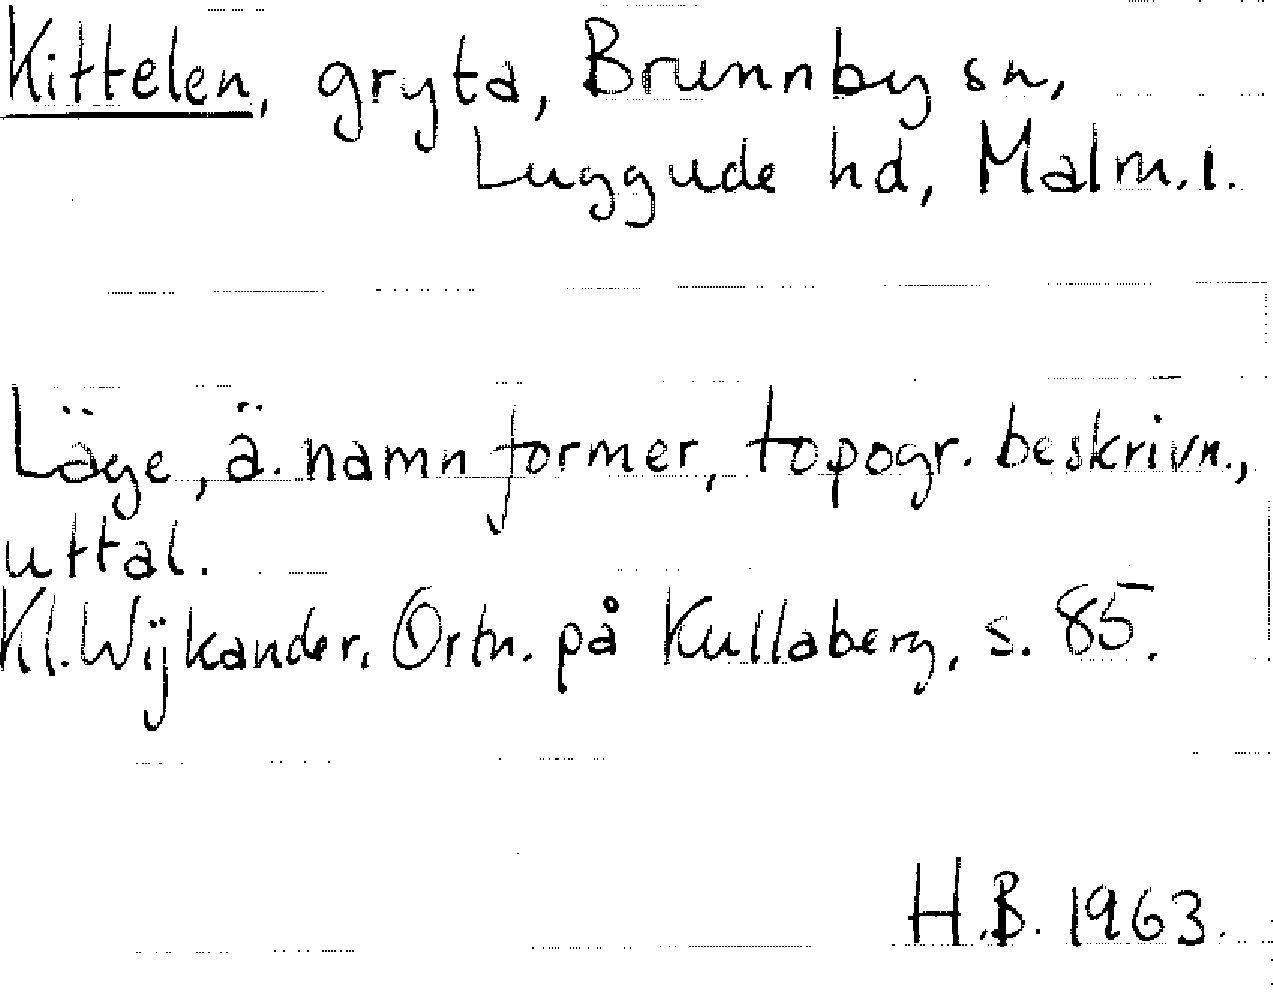 Kittelen, gryta, Brunnby sn,
Luggude hd, Malm.l.
Läge, ä. namnformer, topogr. beskrivn.,
uttal.
Kl. Wijkander, Ortn. på Kullaberg, s. 85.
H.B. 1963.